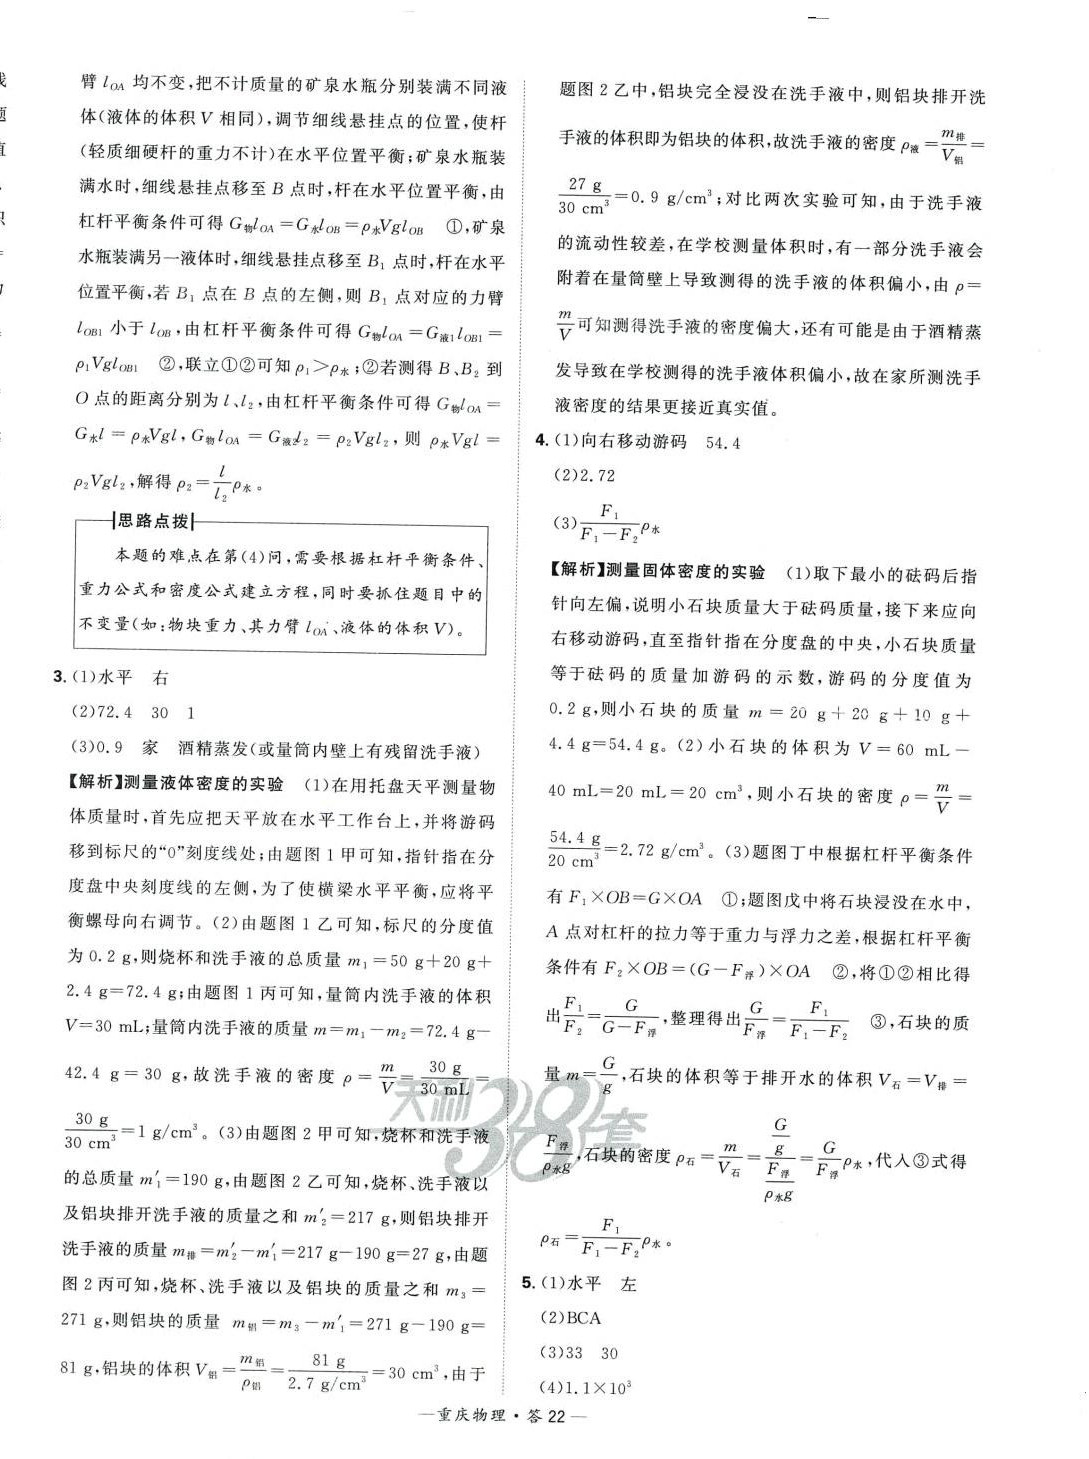 臂 lOA 均不变,把不计质量的矿泉水瓶分别装满不同液
体(液体的体积 V 相同),调节细线悬挂点的位置,使杆
(轻质细硬杆的重力不计)在水平位置平衡;矿泉水瓶装
满水时,细线悬挂点移至 B 点时,杆在水平位置平衡,由
杠杆平衡条件可得 G物lOA=G水lOB=ρ水VglOB ①,矿泉
水瓶装满另一液体时,细线悬挂点移至 B1 点时,杆在水平
位置平衡,若 B1 点在 B 点的左侧,则 B1 点对应的力臂
lOB1 小于 lOB,由杠杆平衡条件可得 G物lOA=G液1lOB1=
ρ1VglOB1 ②,联立①②可知 ρ1>ρ水;②若测得 B、B2 到
O 点的距离分别为 l、l2,由杠杆平衡条件可得 G物lOA=
G水l=ρ水Vgl,G物lOA=G液2l2=ρ2Vgl2,则 ρ水Vgl=
ρ2Vgl2,解得 ρ2=l/l2ρ水。
思路点拨
本题的难点在第(4)问,需要根据杠杆平衡条件、
重力公式和密度公式建立方程,同时要抓住题目中的
不变量(如:物块重力、其力臂 lOA、液体的体积 V)。
3. (1)水平 右
(2)72.4 30 1
(3)0.9 家 酒精蒸发(或量筒内壁上有残留洗手液)
【解析】测量液体密度的实验 (1)在用托盘天平测量物
体质量时,首先应把天平放在水平工作台上,并将游码
移到标尺的“0”刻度线处;由题图 1 甲可知,指针指在分
度盘中央刻度线的左侧,为了使横梁水平平衡,应将平
衡螺母向右调节。(2)由题图 1 乙可知,标尺的分度值
为 0.2 g,则烧杯和洗手液的总质量 m1=50 g+20 g+
2.4 g=72.4 g;由题图 1 丙可知,量筒内洗手液的体积
V=30 mL;量筒内洗手液的质量 m=m1-m2=72.4 g-
42.4 g=30 g,故洗手液的密度 ρ=m/V=30 g/30 mL=
30 g/30 cm³=1 g/cm³。(3)由题图 2 甲可知,烧杯和洗手液
的总质量 m′1=190 g,由题图 2 乙可知,烧杯、洗手液以
及铝块排开洗手液的质量之和 m′2=217 g,则铝块排开
洗手液的质量 m排=m′2-m′1=217 g-190 g=27 g,由题
图 2 丙可知,烧杯、洗手液以及铝块的质量之和 m3=
271 g,则铝块的质量 m铝=m3-m′1=271 g-190 g=
81 g,铝块的体积 V铝=m铝/ρ铝=81 g/2.7 g/cm³=30 cm³,由于
题图 2 乙中,铝块完全浸没在洗手液中,则铝块排开洗
手液的体积即为铝块的体积,故洗手液的密度 ρ液=m排/V铝=
27 g/30 cm³=0.9 g/cm³;对比两次实验可知,由于洗手液
的流动性较差,在学校测量体积时,有一部分洗手液会
附着在量筒壁上导致测得的洗手液的体积偏小,由 ρ=
m/V可知测得洗手液的密度偏大,还有可能是由于酒精蒸
发导致在学校测得的洗手液体积偏小,故在家所测洗手
液密度的结果更接近真实值。
4. (1)向右移动游码 54.4
(2)2.72
(3)F1/(F1-F2)ρ水
【解析】测量固体密度的实验 (1)取下最小的砝码后指
针向左偏,说明小石块质量大于砝码质量,接下来应向
右移动游码,直至指针指在分度盘的中央,小石块质量
等于砝码的质量加游码的示数,游码的分度值为
0.2 g,则小石块的质量 m=20 g+20 g+10 g+
4.4 g=54.4 g。(2)小石块的体积为 V=60 mL-
40 mL=20 mL=20 cm³,则小石块的密度 ρ=m/V=
54.4 g/20 cm³=2.72 g/cm³。(3)题图丁中根据杠杆平衡条件
有 F1×OB=G×OA ①;题图戊中将石块浸没在水中,
A 点对杠杆的拉力等于重力与浮力之差,根据杠杆平衡
条件有 F2×OB=(G-F浮)×OA ②,将①②相比得
出F1/F2=G/(G-F浮),整理得出G/F浮=F1/(F1-F2) ③,石块的质
量 m=G/g,石块的体积等于排开水的体积 V石=V排=
F浮/ρ水g,石块的密度 ρ石=m/V石=(G/g)/(F浮/ρ水g)=G/F浮ρ水,代入③式得
ρ石=F1/(F1-F2)ρ水。
5. (1)水平 左
(2)BCA
(3)33 30
(4)1.1×10³
天利38套
—重庆物理·答 22—